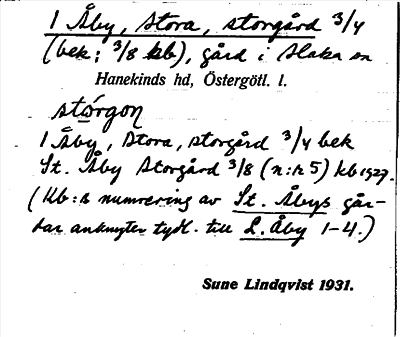 1 Åby, Stora, storgård 3/4
(bek; 3/8 kb), gård i Slaka sn
Hanekinds hd, Östergötl. l.
stórgon
1 Åby, Stora, storgård 3/4 bek
St. Åby Storgård 3/8 (n:r 5) kb 1927.
(Kb:s numrering av St. Åbys går-
dar anknyter tydl. till L. Åby 1-4.)
Sune Lindqvist 1931.